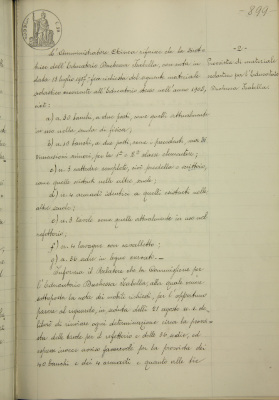 - 399 -
L'Amministratore Strina riferisce che la Diret-
trice dell'Educatorio Duchessa Isabella, con nota in
data 13 luglio 1905, fece richiesta del seguente materiale
scolastico occorrente all'Educatorio stesso nell'anno 1905,
cioè:
a) n. 30 banchi, a due posti, come quelli attualmente
in uso nella scuola di fisica;
b) n. 10 banchi, a due posti, come i precedenti, ma di
dimensioni minori, per la 1ª e 2ª classe elementare;
c) n. 3 cattedre complete, cioè predellino e scrittoio,
come quelle esistenti nelle altre scuole;
d) n. 4 armadi identici a quelli esistenti nelle
altre scuole;
e) n. 3 tavole come quelle attualmente in uso nel
refettorio;
f) n. 4 lavagne con cavalletto;
g) n. 50 sedie in legno curvati. -
Informa il Relatore che la Commissione per
l'Educatorio Duchessa Isabella, alla quale venne
sottoposta la nota dei mobili richiesti, per l'opportuno
parere al riguardo, in seduta delli 21 agosto u. s. de-
liberò di rinviare ogni determinazione circa la provvi-
sta delle tavole per il refettorio e delle 50 sedie, ed
espresse invece avviso favorevole per la provvista dei
40 banchi e dei 4 armadi e quanto alle tre
- 2 -
Provvista di materiale
scolastico per l'Educatorio
Duchessa Isabella.